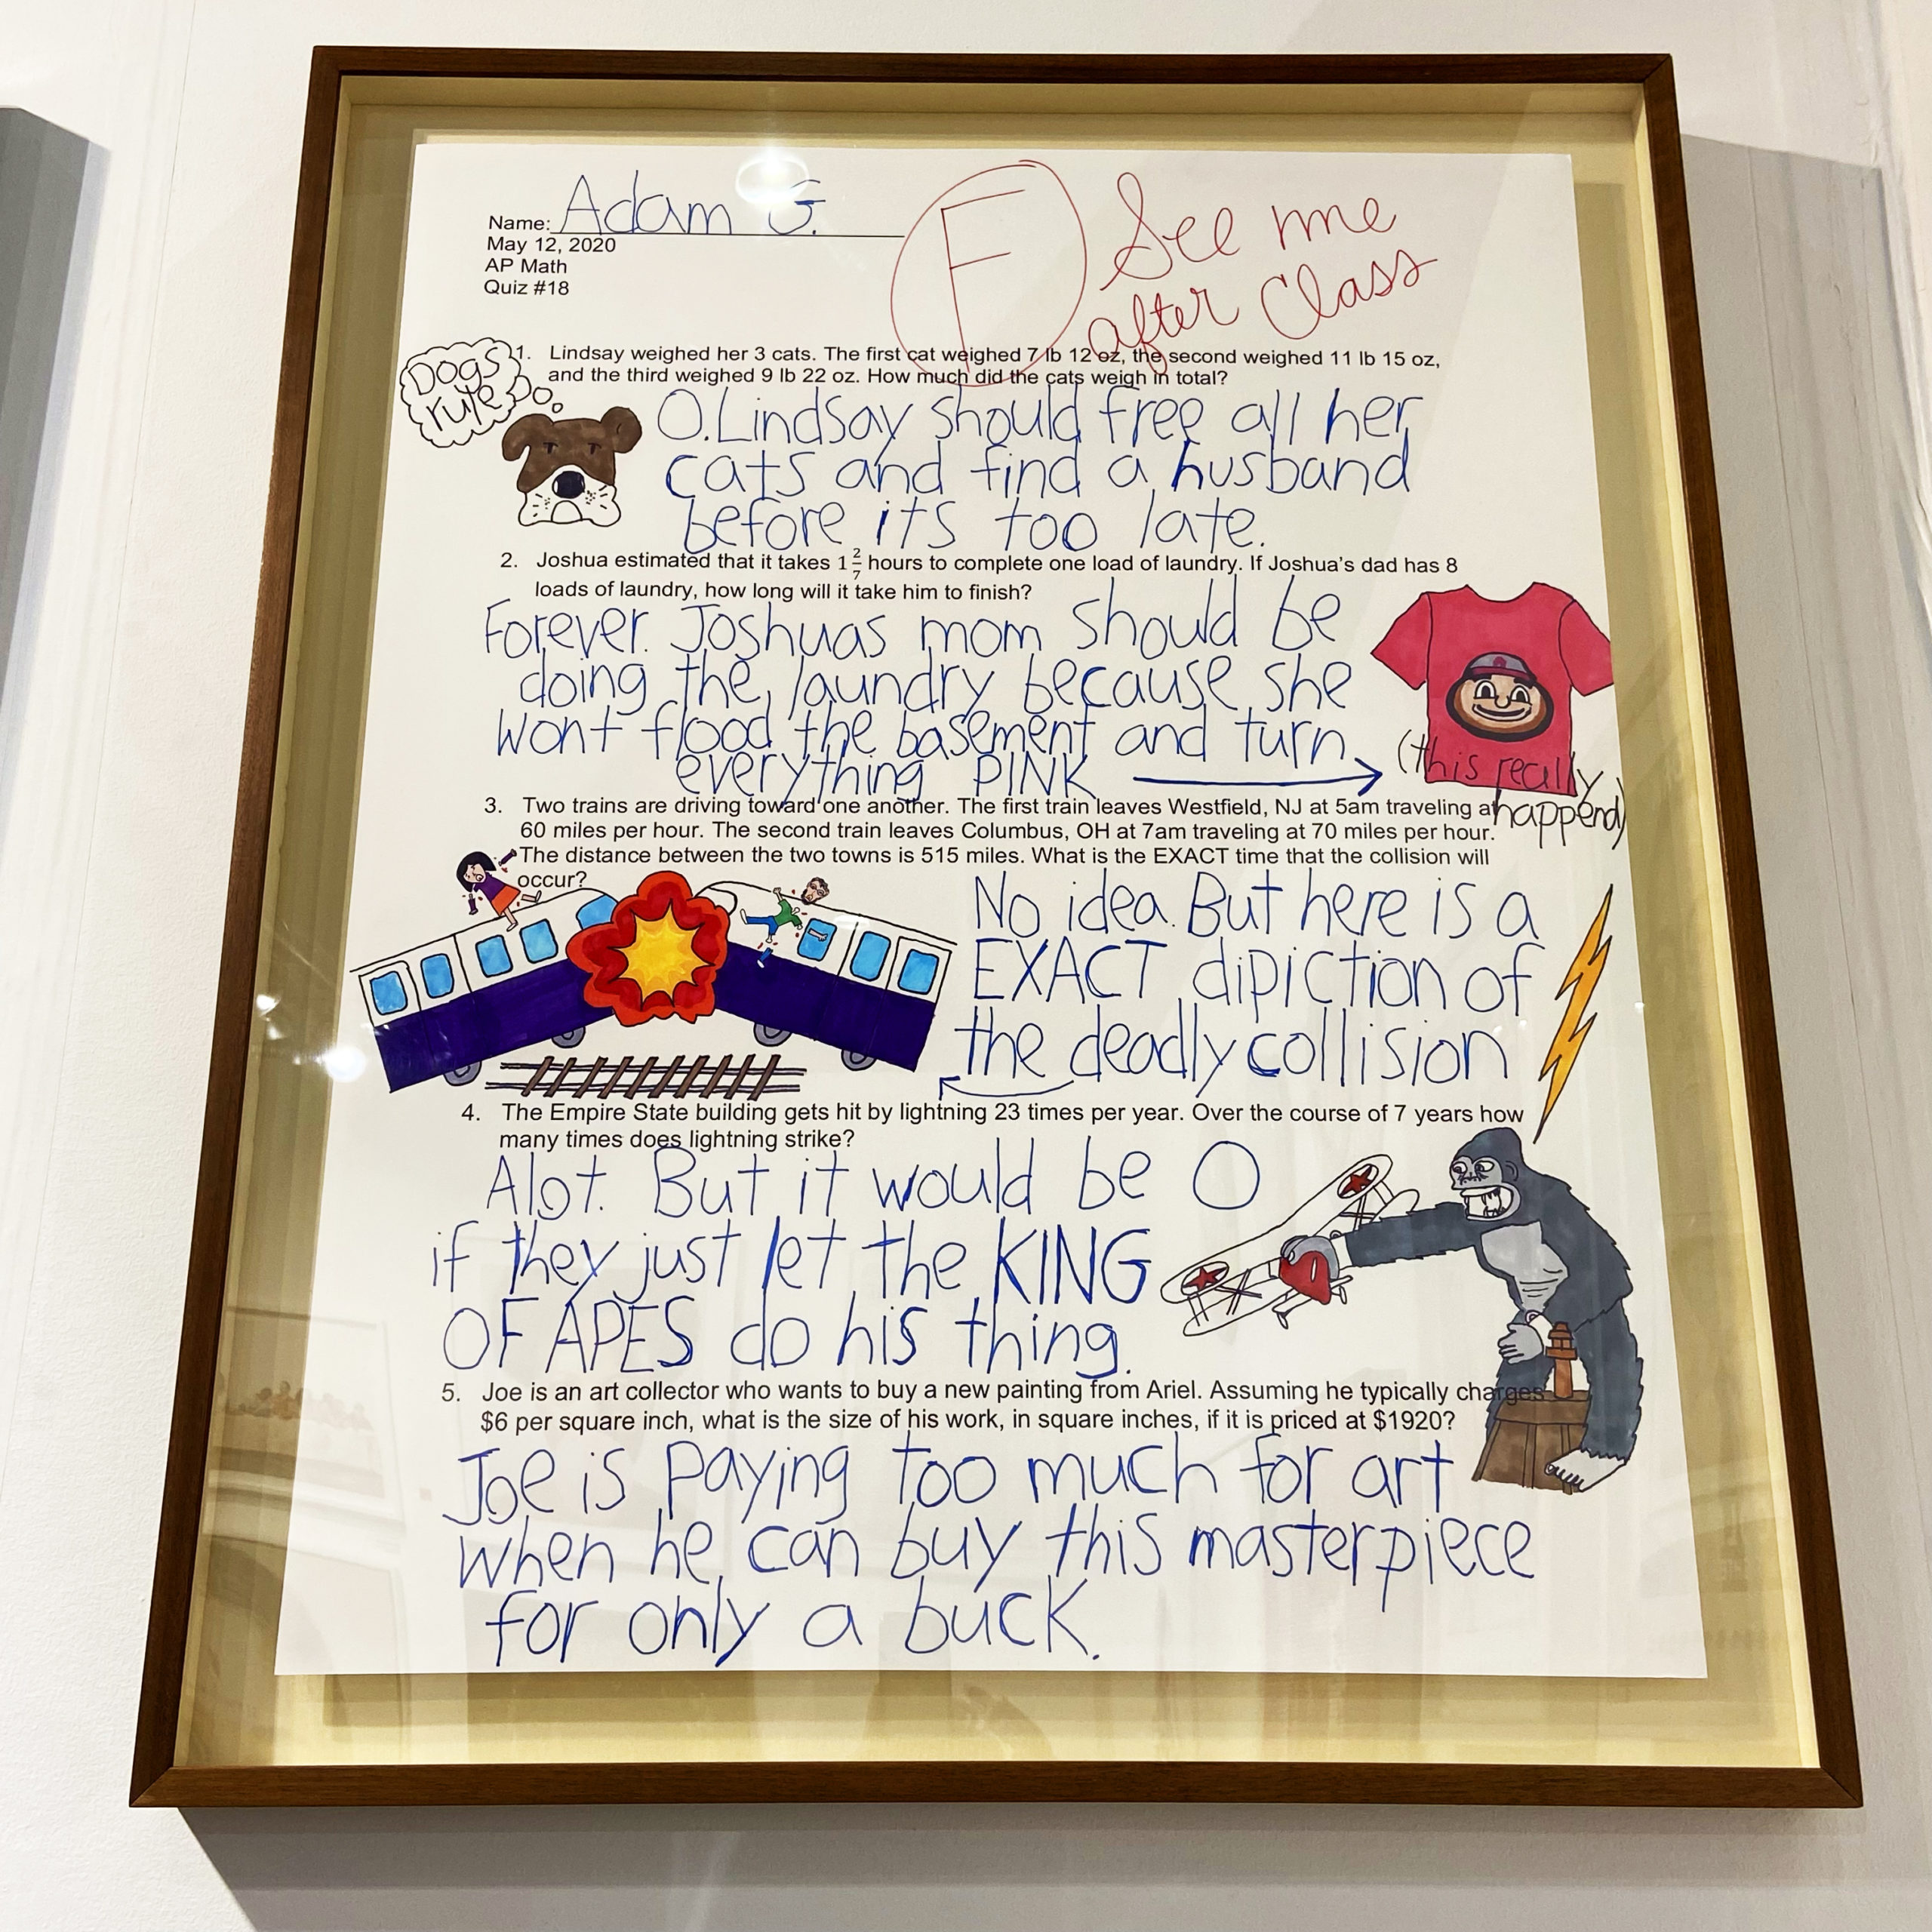 Name: Adam G.
May 12, 2020
AP Math
Quiz #18
F
See me
after Class
Dogs
rule
1. Lindsay weighed her 3 cats. The first cat weighed 7 lb 12 oz, the second weighed 11 lb 15 oz,
and the third weighed 9 lb 22 oz. How much did the cats weigh in total?
O. Lindsay should free all her
cats and find a husband
before its too late.
2. Joshua estimated that it takes 1 2/7 hours to complete one load of laundry. If Joshua's dad has 8
loads of laundry, how long will it take him to finish?
Forever. Joshuas mom should be
doing the laundry because she
wont flood the basement and turn
everything PINK
(this really
happend)
3. Two trains are driving toward one another. The first train leaves Westfield, NJ at 5am traveling a
60 miles per hour. The second train leaves Columbus, OH at 7am traveling at 70 miles per hour.
The distance between the two towns is 515 miles. What is the EXACT time that the collision will
occur?
No idea. But here is a
EXACT dipiction of
the deadly collision
4. The Empire State building gets hit by lightning 23 times per year. Over the course of 7 years how
many times does lightning strike?
Alot. But it would be 0
if they just let the KING
OF APES do his thing.
5. Joe is an art collector who wants to buy a new painting from Ariel. Assuming he typically charges
$6 per square inch, what is the size of his work, in square inches, if it is priced at $1920?
Joe is paying too much for art
when he can buy this masterpiece
for only a buck.